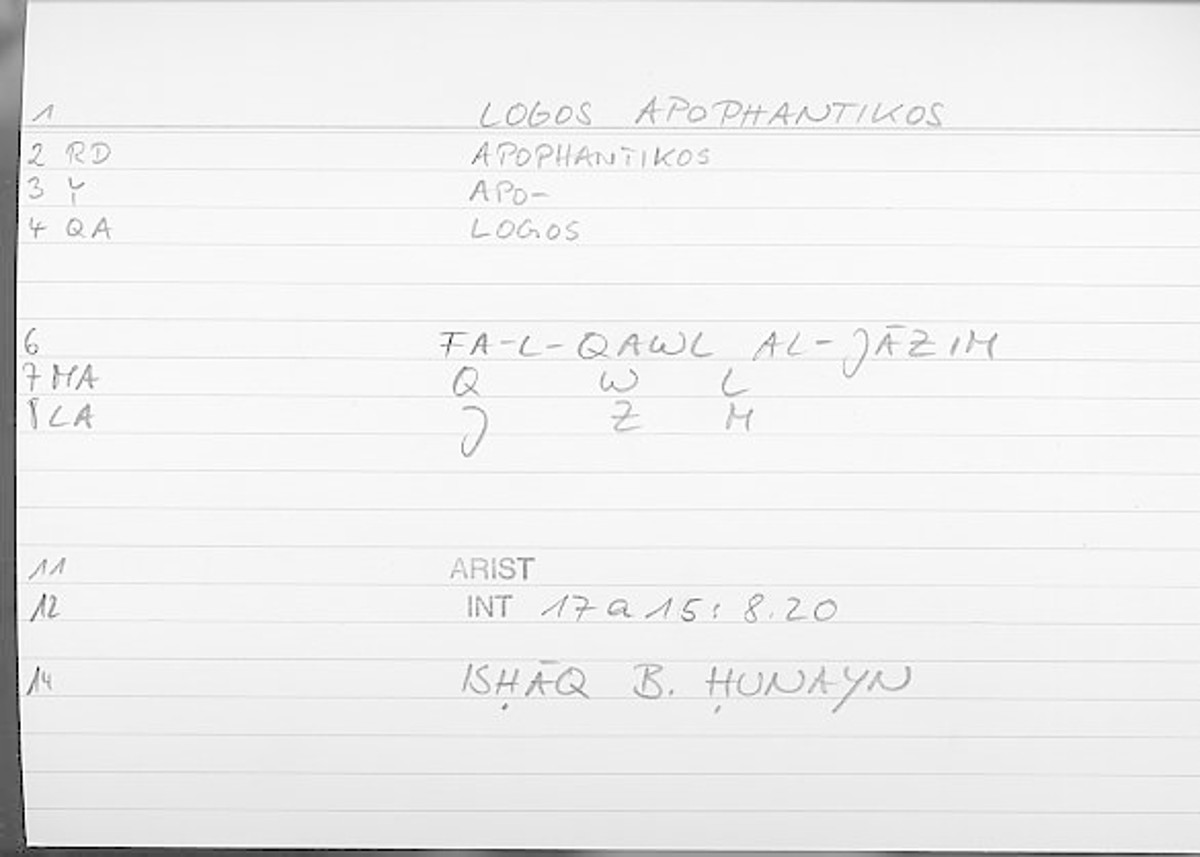 1 LOGOS APOPHANTIKOS
2 RD APOPHANTIKOS
3 Y APO-
4 QA LOGOS
6 FA-L-QAWL AL-JĀZIM
7 MA Q W L
8 LA J Z M
11 ARIST
12 INT 17a15: 8.20
14 ISḤĀQ B. ḤUNAYN